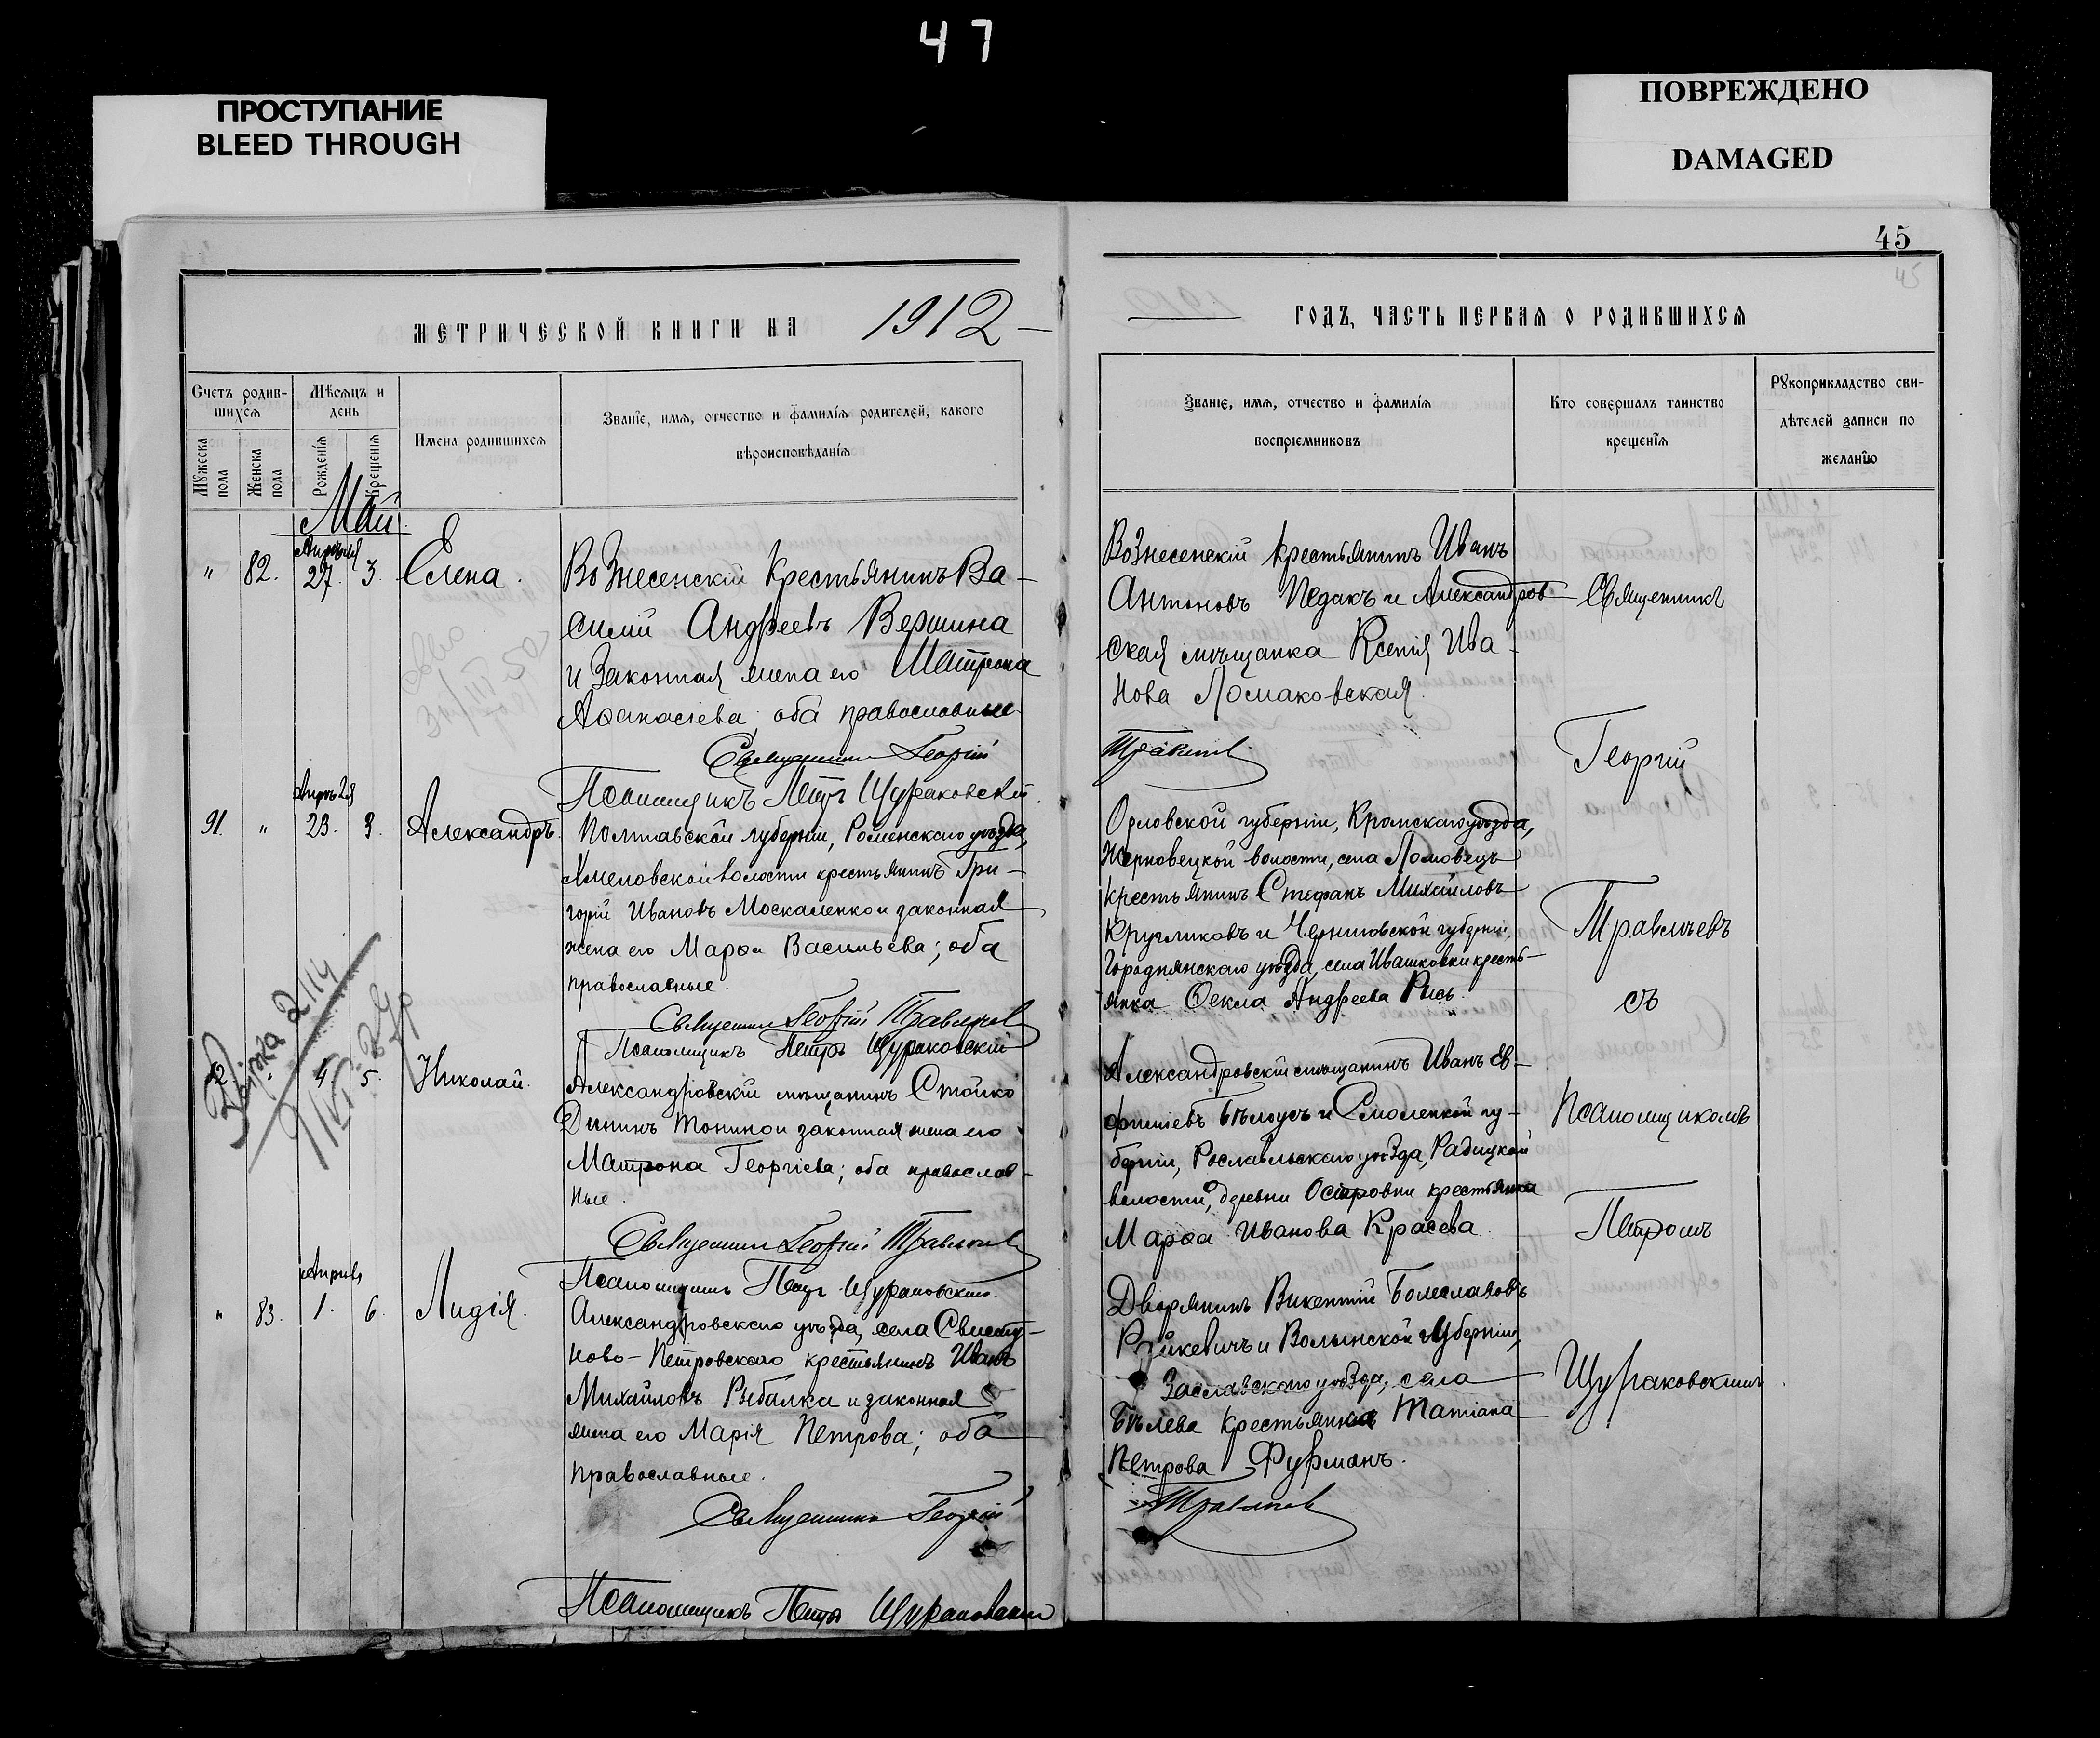 47
ПРОСТУПАНИЕ
BLEED THROUGH
ПОВРЕЖДЕНО
DAMAGED
45
45
МЕТРИЧЕСКОЙ КНИГИ НА 1912
Счетъ родившихся
Мѣсяцъ и день
Имена родившихся
Званіе, имя, отчество и фамилія родителей, какого
вѣроисповѣданія
Мужеска пола
Женска пола
Рожденія
Крещенія
Май
" 82. Апрѣля 27. 3. Елена.
Вознесенскій Крестьянинъ Ва-
силій Андреевъ Вершина
и Законная жена его Матрона
Аѳанасіева, оба православные.
Священникъ Георгій
Псаломщикъ Петръ Щураковскій.
91. " Апрѣля 23. 3. Александръ.
Полтавской губерніи, Роменскаго уѣзда,
Хмеловской волости крестьянинъ Гри-
горій Ивановъ Москаленко и законная
жена его Марѳа Васильева; оба
православные.
Священникъ Георгій Травличевъ
Псаломщикъ Петръ Щураковскій
92. " 4. 5. Николай.
Александровскій мѣщанинъ Стойко
Дининъ Тонино и законная жена его
Матрона Георгіева; оба православ-
ные.
Священникъ Георгій Травличевъ
Псаломщикъ Петръ Щураковскій.
" 83. Апрѣля 1. 6. Лидія.
Александровскаго уѣзда, села Свисту-
ново-Петровскаго крестьянинъ Иванъ
Михайловъ Рыбалка и законная
жена его Марія Петрова; оба
православные.
Священникъ Георгій
Псаломщикъ Петръ Щураковскій
ГОДЪ, ЧАСТЬ ПЕРВАЯ О РОДИВШИХСЯ
Званіе, имя, отчество и фамилія
воспріемниковъ
Кто совершалъ таинство
крещенія
Рукоприкладство сви-
дѣтелей записи по
желанію
Вознесенскій крестьянинъ Иванъ
Антоновъ Педакъ и Александров-
ская мѣщанка Ксенія Ива-
нова Ломаковская.
Травличевъ
Орловской губерніи, Кромскаго уѣзда,
Жерновецкой волости, села Ломовецъ
крестьянинъ Стефанъ Михайловъ
Кругликовъ и Черниговской губерніи,
Городнянскаго уѣзда, села Ивашковки кресть-
янка Ѳекла Андреева Рысь.
Александровскій мѣщанинъ Иванъ Ев-
фиміевъ Бѣлоусъ и Смоленской гу-
берніи, Рославльскаго уѣзда, Радицкой
волости, деревни Островки крестьянка
Марѳа Иванова Красева.
Дворянинъ Викентій Болеславовъ
Рейкевичъ и Волынской губерніи,
Заславскаго уѣзда, села
Бѣлева крестьянка Татіана
Петрова Фурманъ.
Травличевъ
Священникъ
Георгій
Травличевъ
съ
Псаломщикомъ
Петромъ
Щураковскимъ